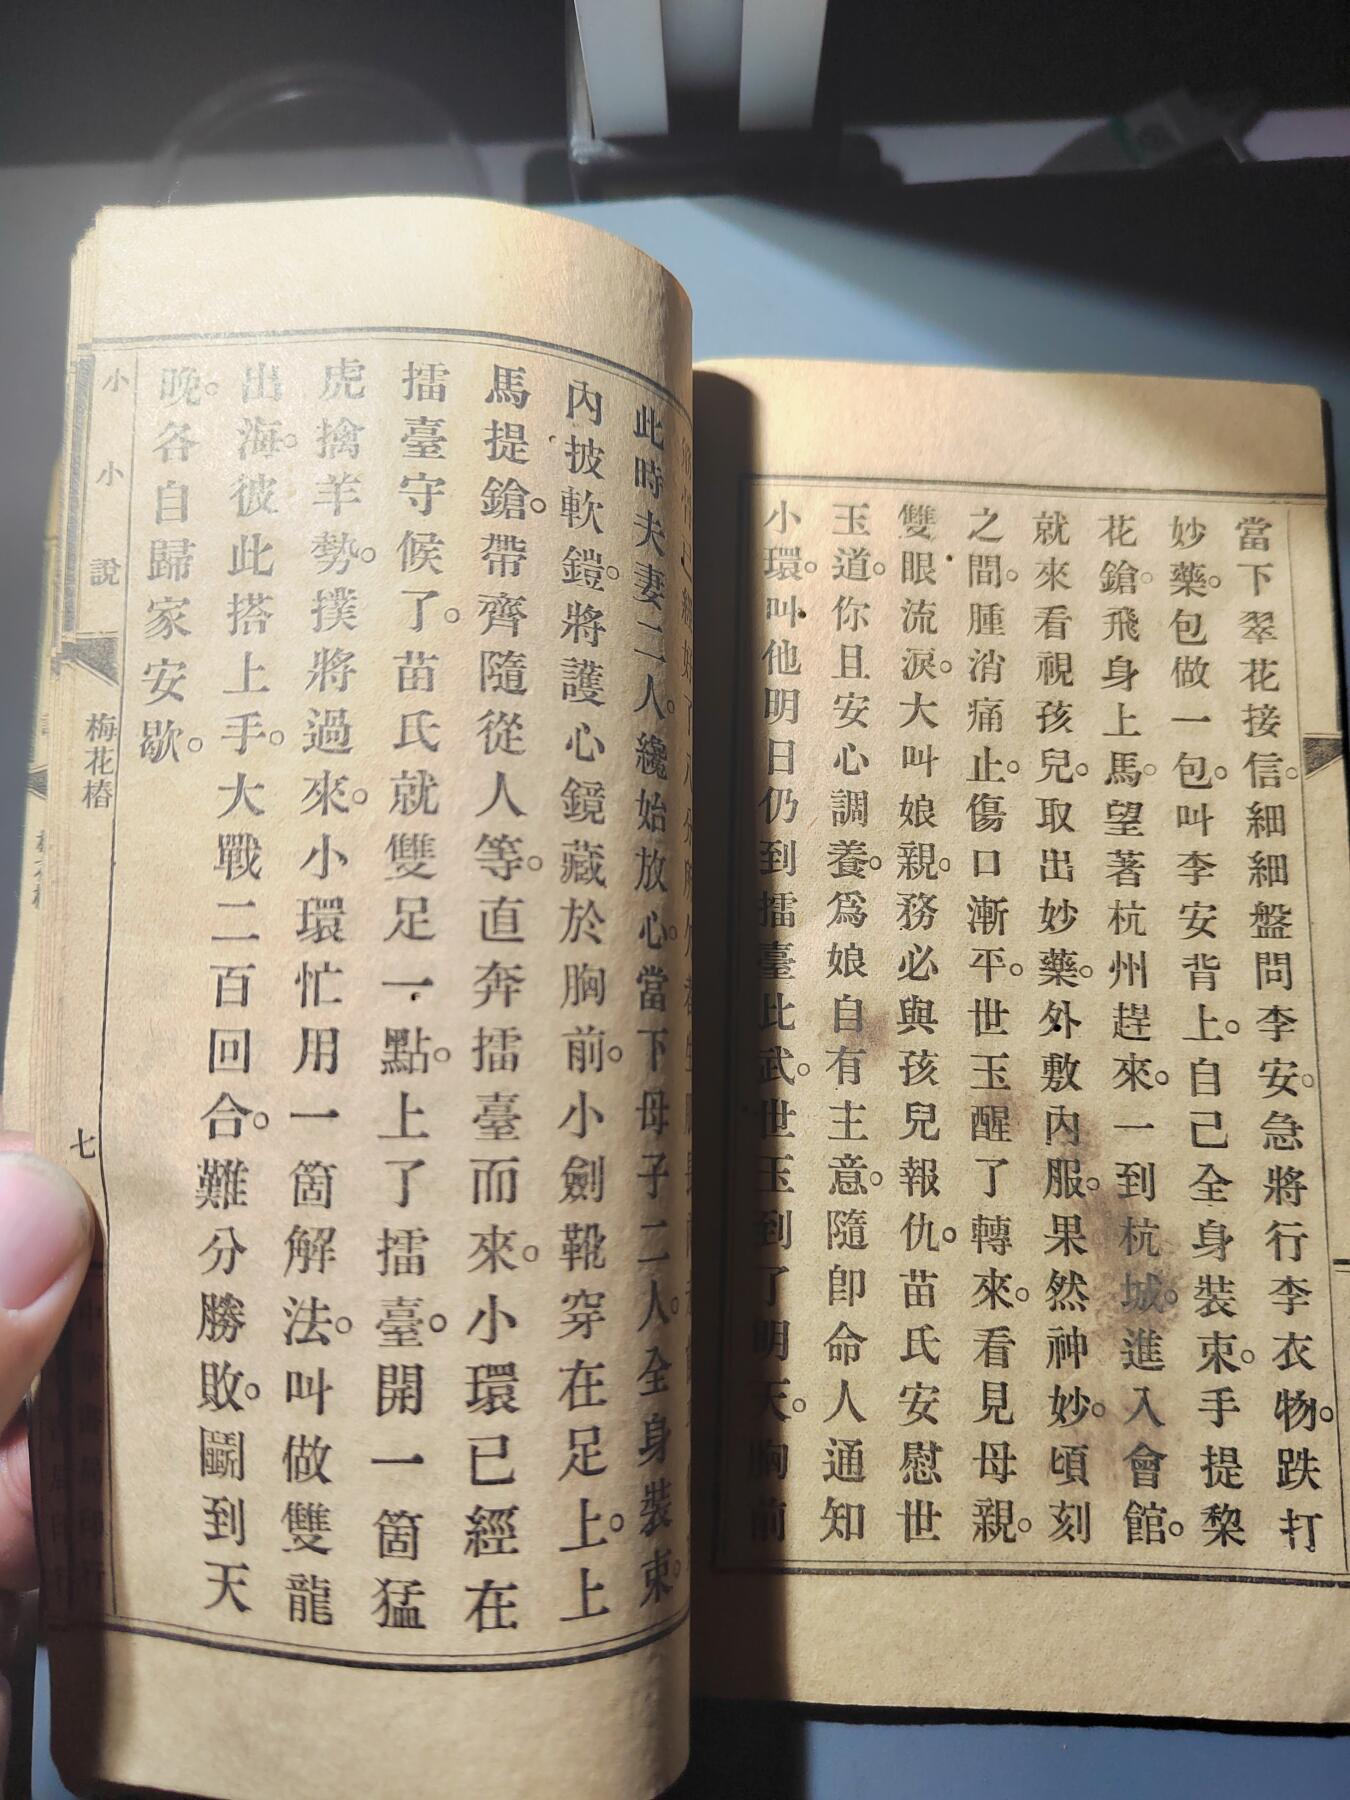 當下翠花接信。細細盤問李安。急將行李衣物。跌打
妙藥。包做一包。叫李安背上。自己全身裝束。手提棃
花鎗。飛身上馬。望著杭州趕來。一到杭城。進入會館。
就來看視孩兒。取出妙藥。外敷內服。果然神妙。頃刻
之間。腫消痛止。傷口漸平。世玉醒了轉來。看見母親。
雙眼流淚。大叫娘親。務必與孩兒報仇。苗氏安慰世
玉道。你且安心調養。爲娘自有主意。隨卽命人通知
小環。叫他明日仍到擂臺比武。世玉到了明天。胸前
此時夫妻二人。纔始放心。當下母子二人。全身裝束。
內披軟鎧。將護心鏡藏於胸前。小劍靴穿在足上。上
馬提鎗。帶齊隨從人等。直奔擂臺而來。小環已經在
擂臺守候了。苗氏就雙足一點。上了擂臺。開一箇猛
虎擒羊勢。撲將過來。小環忙用一箇解法。叫做雙龍
出海。彼此搭上手。大戰二百回合。難分勝敗。鬭到天
晚。各自歸家安歇。
小小說
梅花樁
七